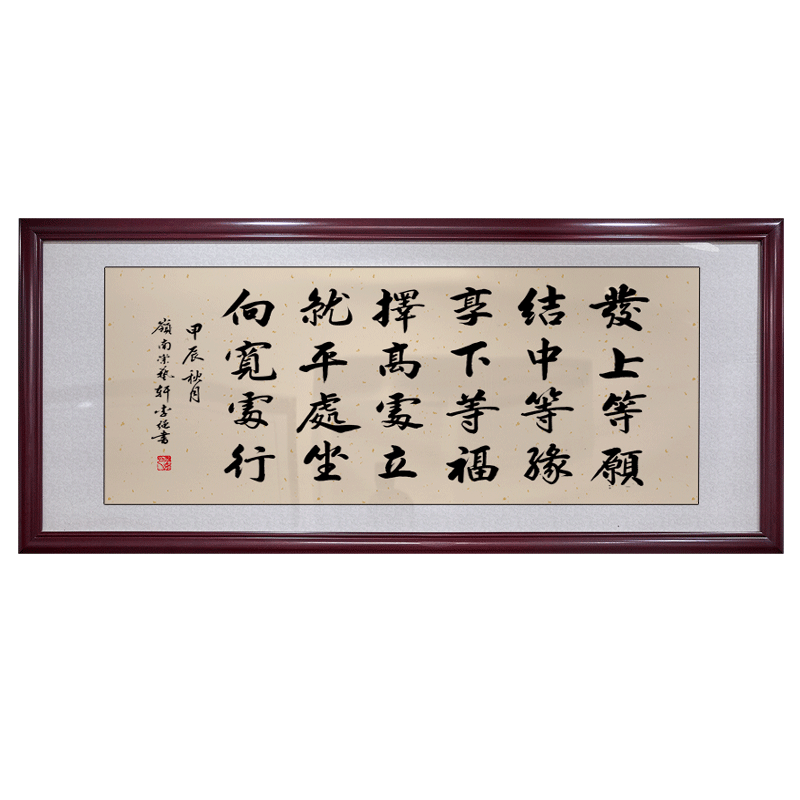 發上等願
結中等緣
享下等福
擇高處立
就平處坐
向寬處行
甲辰秋月
嶺南崇藝軒李伍書